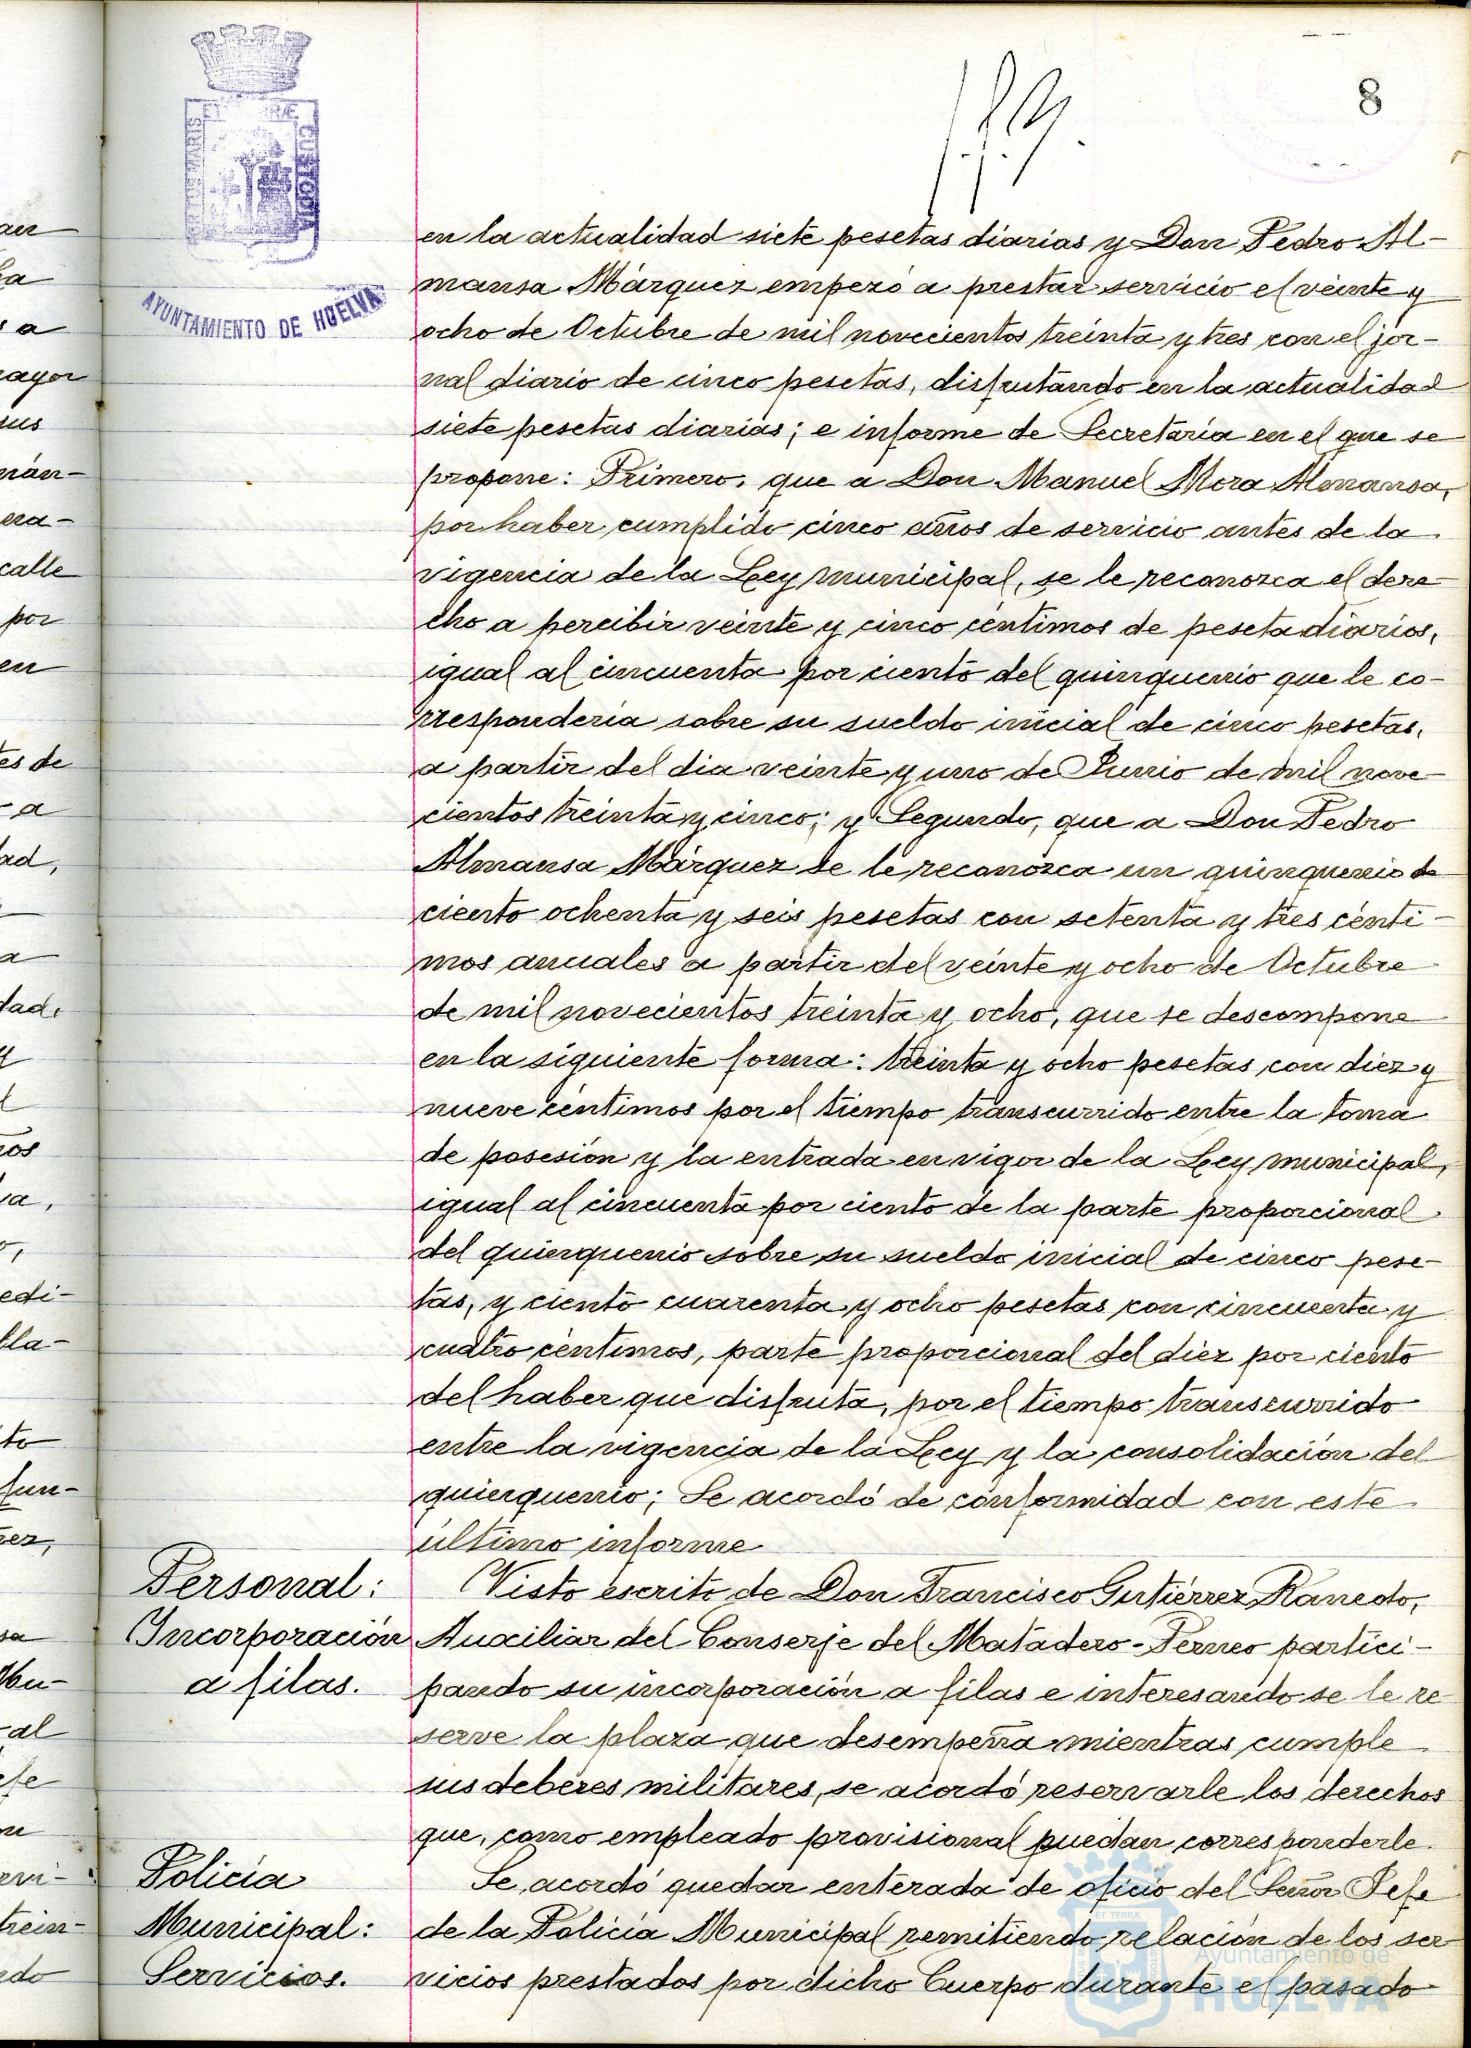 8
PORTUS MARIS ET TERRÆ CUSTODIA
AYUNTAMIENTO DE HUELVA
en la actualidad siete pesetas diarias y Don Pedro Al-
mansa Márquez empezó a prestar servicio el veinte y
ocho de Octubre de mil novecientos treinta y tres con el jor-
nal diario de cinco pesetas, disfrutando en la actualidad
siete pesetas diarias; e informe de Secretaría en el que se
propone: Primero, que a Don Manuel Mora Almansa,
por haber cumplido cinco años de servicio antes de la
vigencia de la Ley municipal, se le reconozca el dere-
cho a percibir veinte y cinco céntimos de peseta diarios,
igual al cincuenta por ciento del quinquenio que le co-
rrespondería sobre su sueldo inicial de cinco pesetas,
a partir del dia veinte y uno de Junio de mil nove-
cientos treinta y cinco; y Segundo, que a Don Pedro
Almansa Márquez se le reconozca un quinquenio de
ciento ochenta y seis pesetas con setenta y tres cénti-
mos anuales a partir del veinte y ocho de Octubre
de mil novecientos treinta y ocho, que se descompone
en la siguiente forma: treinta y ocho pesetas con diez y
nueve céntimos por el tiempo transcurrido entre la toma
de posesión y la entrada en vigor de la Ley municipal,
igual al cincuenta por ciento de la parte proporcional
del quinquenio sobre su sueldo inicial de cinco pese-
tas, y ciento cuarenta y ocho pesetas con cincuenta y
cuatro céntimos, parte proporcional del diez por ciento
del haber que disfruta, por el tiempo transcurrido
entre la vigencia de la Ley y la consolidación del
quinquenio; Se acordó de conformidad con este
último informe
Personal:
Incorporación
a filas.
Visto escrito de Don Francisco Gutiérrez Ranedo,
Auxiliar del Conserje del Matadero-Perneo partici-
pando su incorporación a filas e interesando se le re-
serve la plaza que desempeña mientras cumple
sus deberes militares, se acordó reservarle los derechos
que, como empleado provisional puedan corresponderle
Policía
Municipal:
Servicios.
Se acordó quedar enterada de oficio del Señor Jefe
de la Policía Municipal remitiendo relación de los ser-
vicios prestados por dicho Cuerpo durante el pasado
Ayuntamiento de
HUELVA